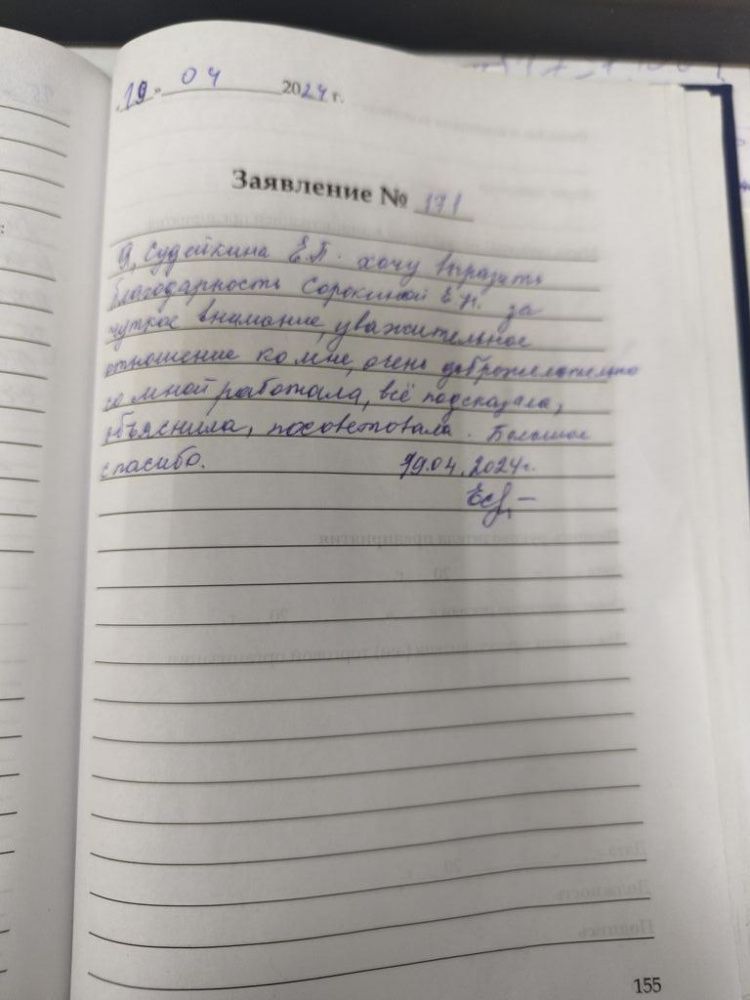 „19" 04 2024 г.
Заявление № 171
Я, Судейкина Е.П. хочу выразить
благодарность Сорокиной Е.Н. за
чуткое внимание, уважительное
отношение ко мне, очень доброжелательно
со мной работала, всё подсказала,
объяснила, посоветовала. Большое
спасибо. 19.04.2024г.
155